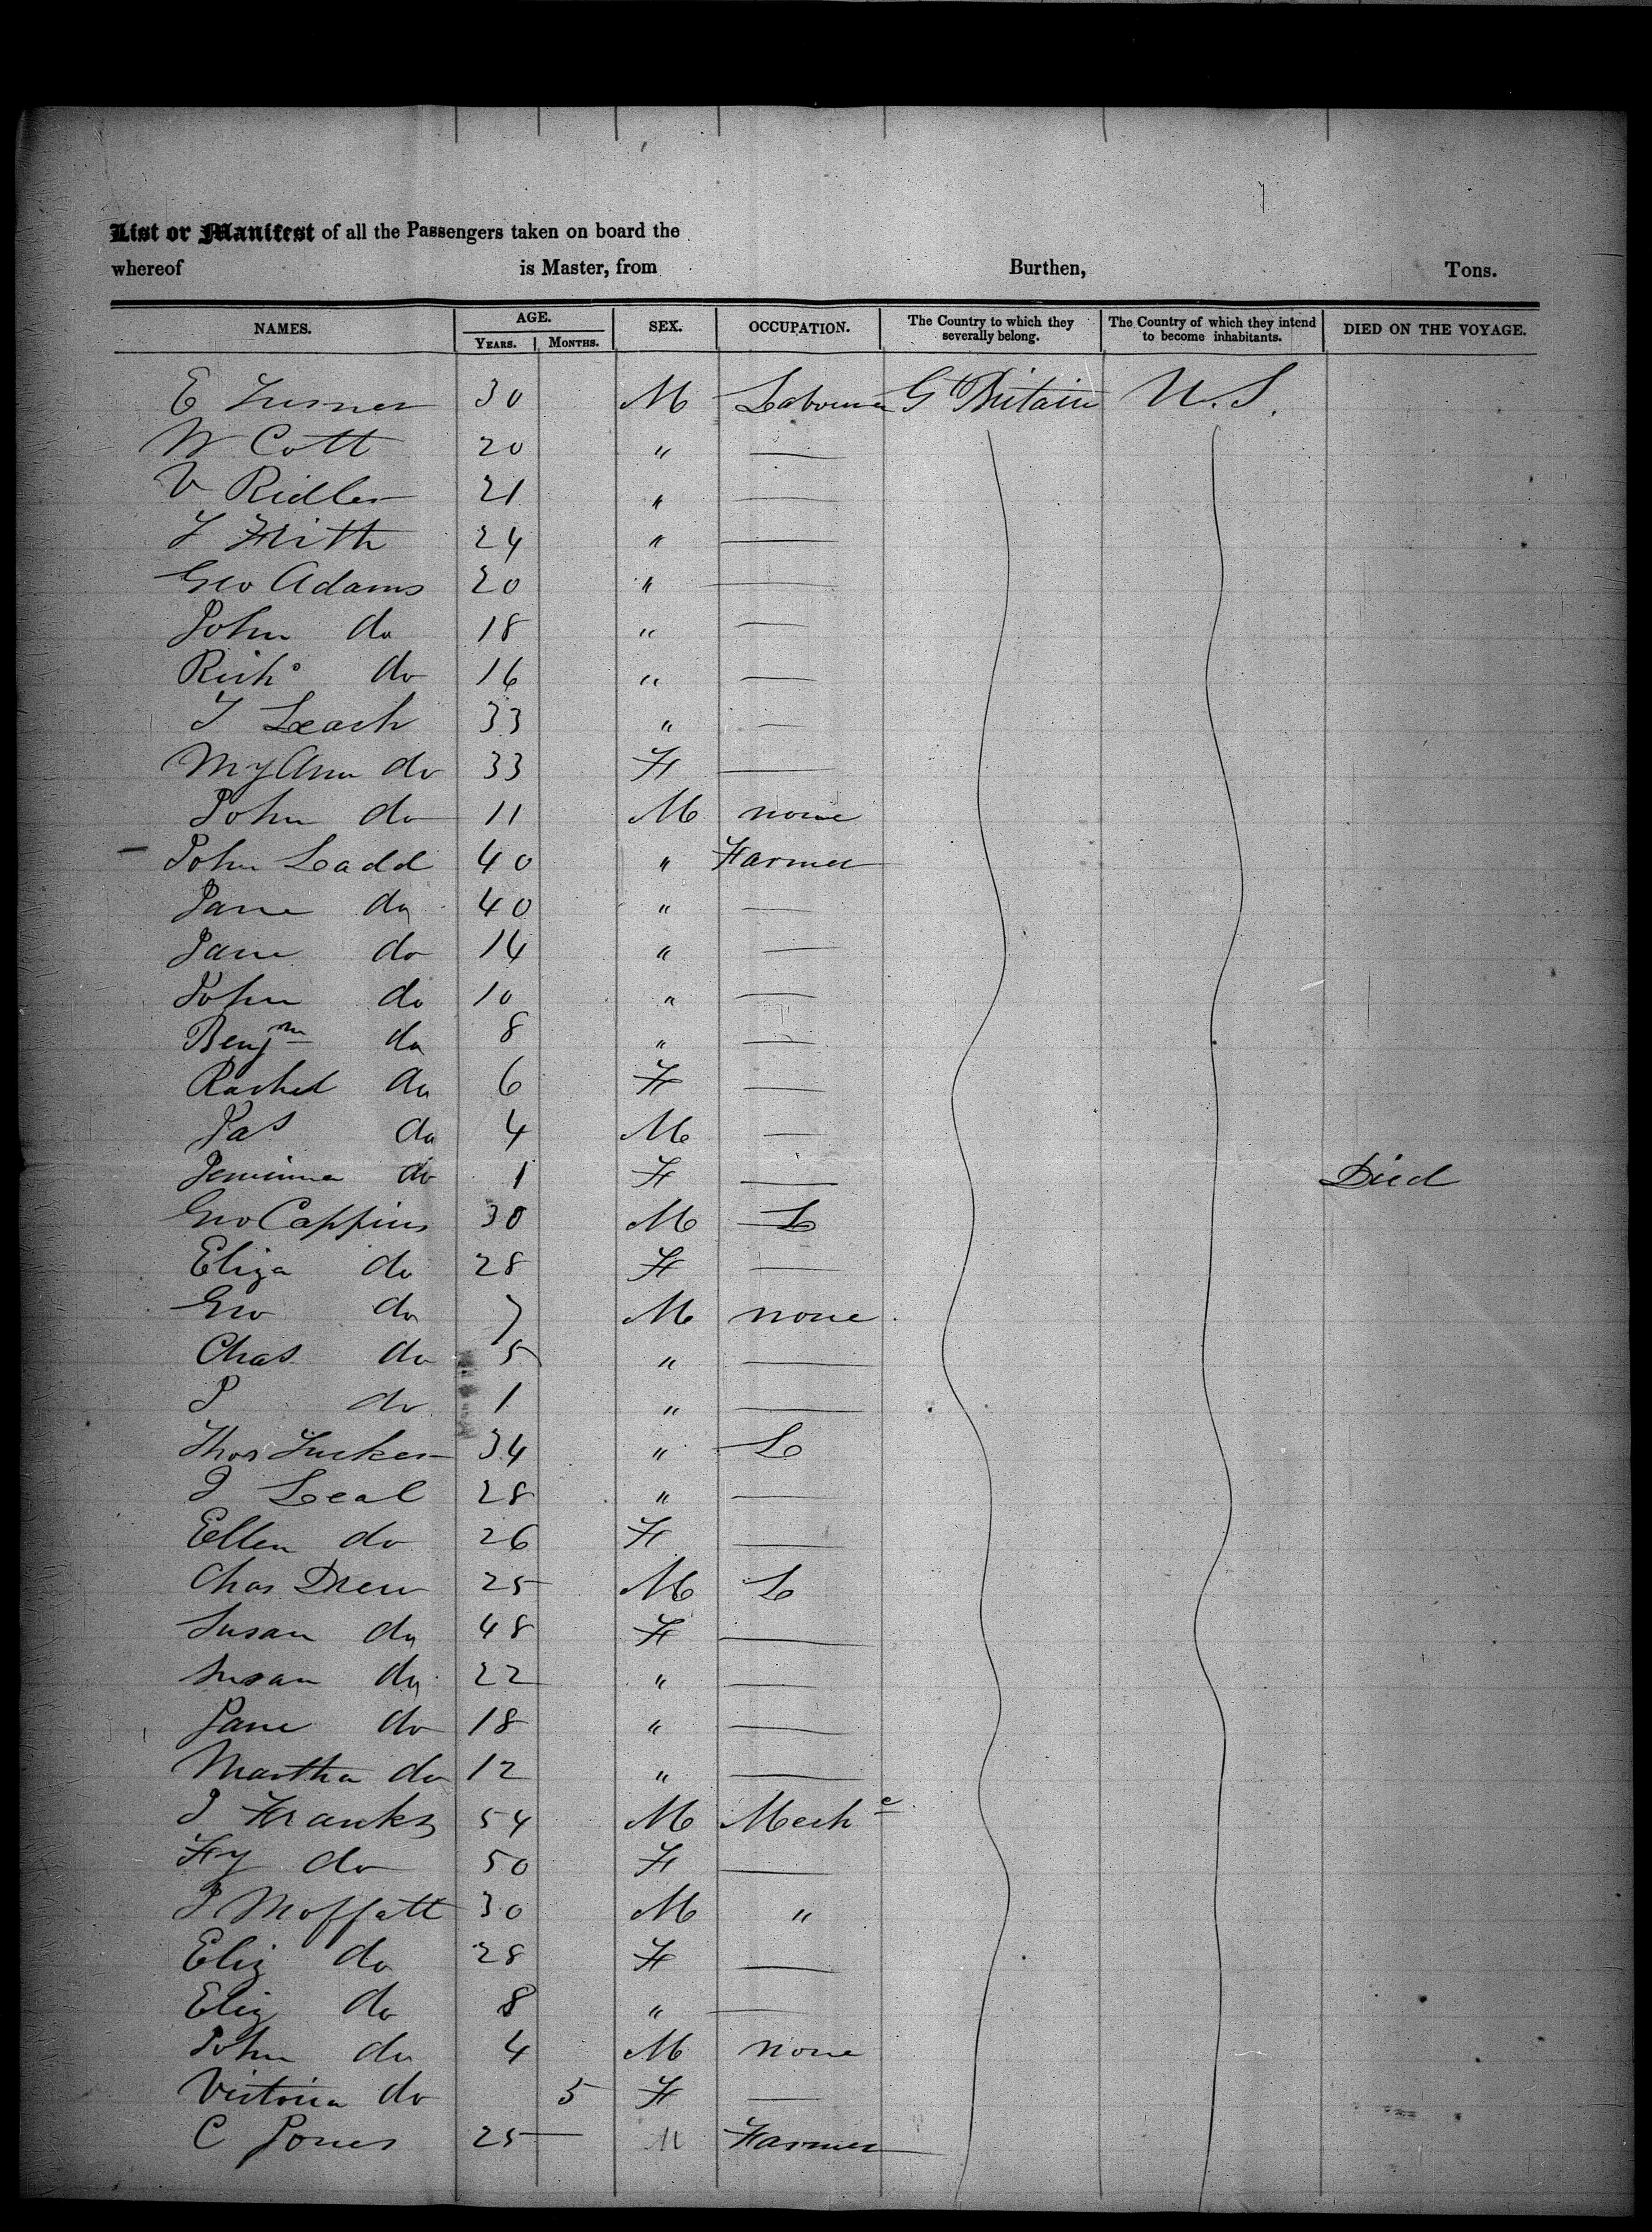 List or Manifest of all the Passengers taken on board the
whereof is Master, from Burthen, Tons.
NAMES. AGE. SEX. OCCUPATION. The Country to which they severally belong. The Country of which they intend to become inhabitants. DIED ON THE VOYAGE.
YEARS. MONTHS.
E Turner 30 M Labourer Gt Britain U.S.
W Cott 20 " —
V Ridler 21 " —
T Frith 24 " —
Geo Adams 20 " —
John do 18 " —
Richd do 16 " —
T Leach 33 " —
My Ann do 33 F —
John do 11 M none
John Ladd 40 " Farmer
Jane do 40 " —
Jane do 14 " —
John do 10 " —
Benjm do 8 " —
Rachel do 6 F —
Jas do 4 M —
Jemima do 1 F — Died
Geo Cappins 30 M L
Eliza do 28 F —
Geo do 7 M none
Chas do 5 " —
J do 1 " —
Thos Tucker 34 " L
J Leal 28 " —
Ellen do 26 F —
Chas Drew 25 M L
Susan do 48 F —
Susan do 22 " —
Jane do 18 " —
Martha do 12 " —
J Franks 54 M Meche
Fy do 50 F —
J Moffatt 30 M "
Eliz do 28 F —
Eliz do 8 " —
John do 4 M none
Victoria do 5 F —
C Jones 25 — M Farmer